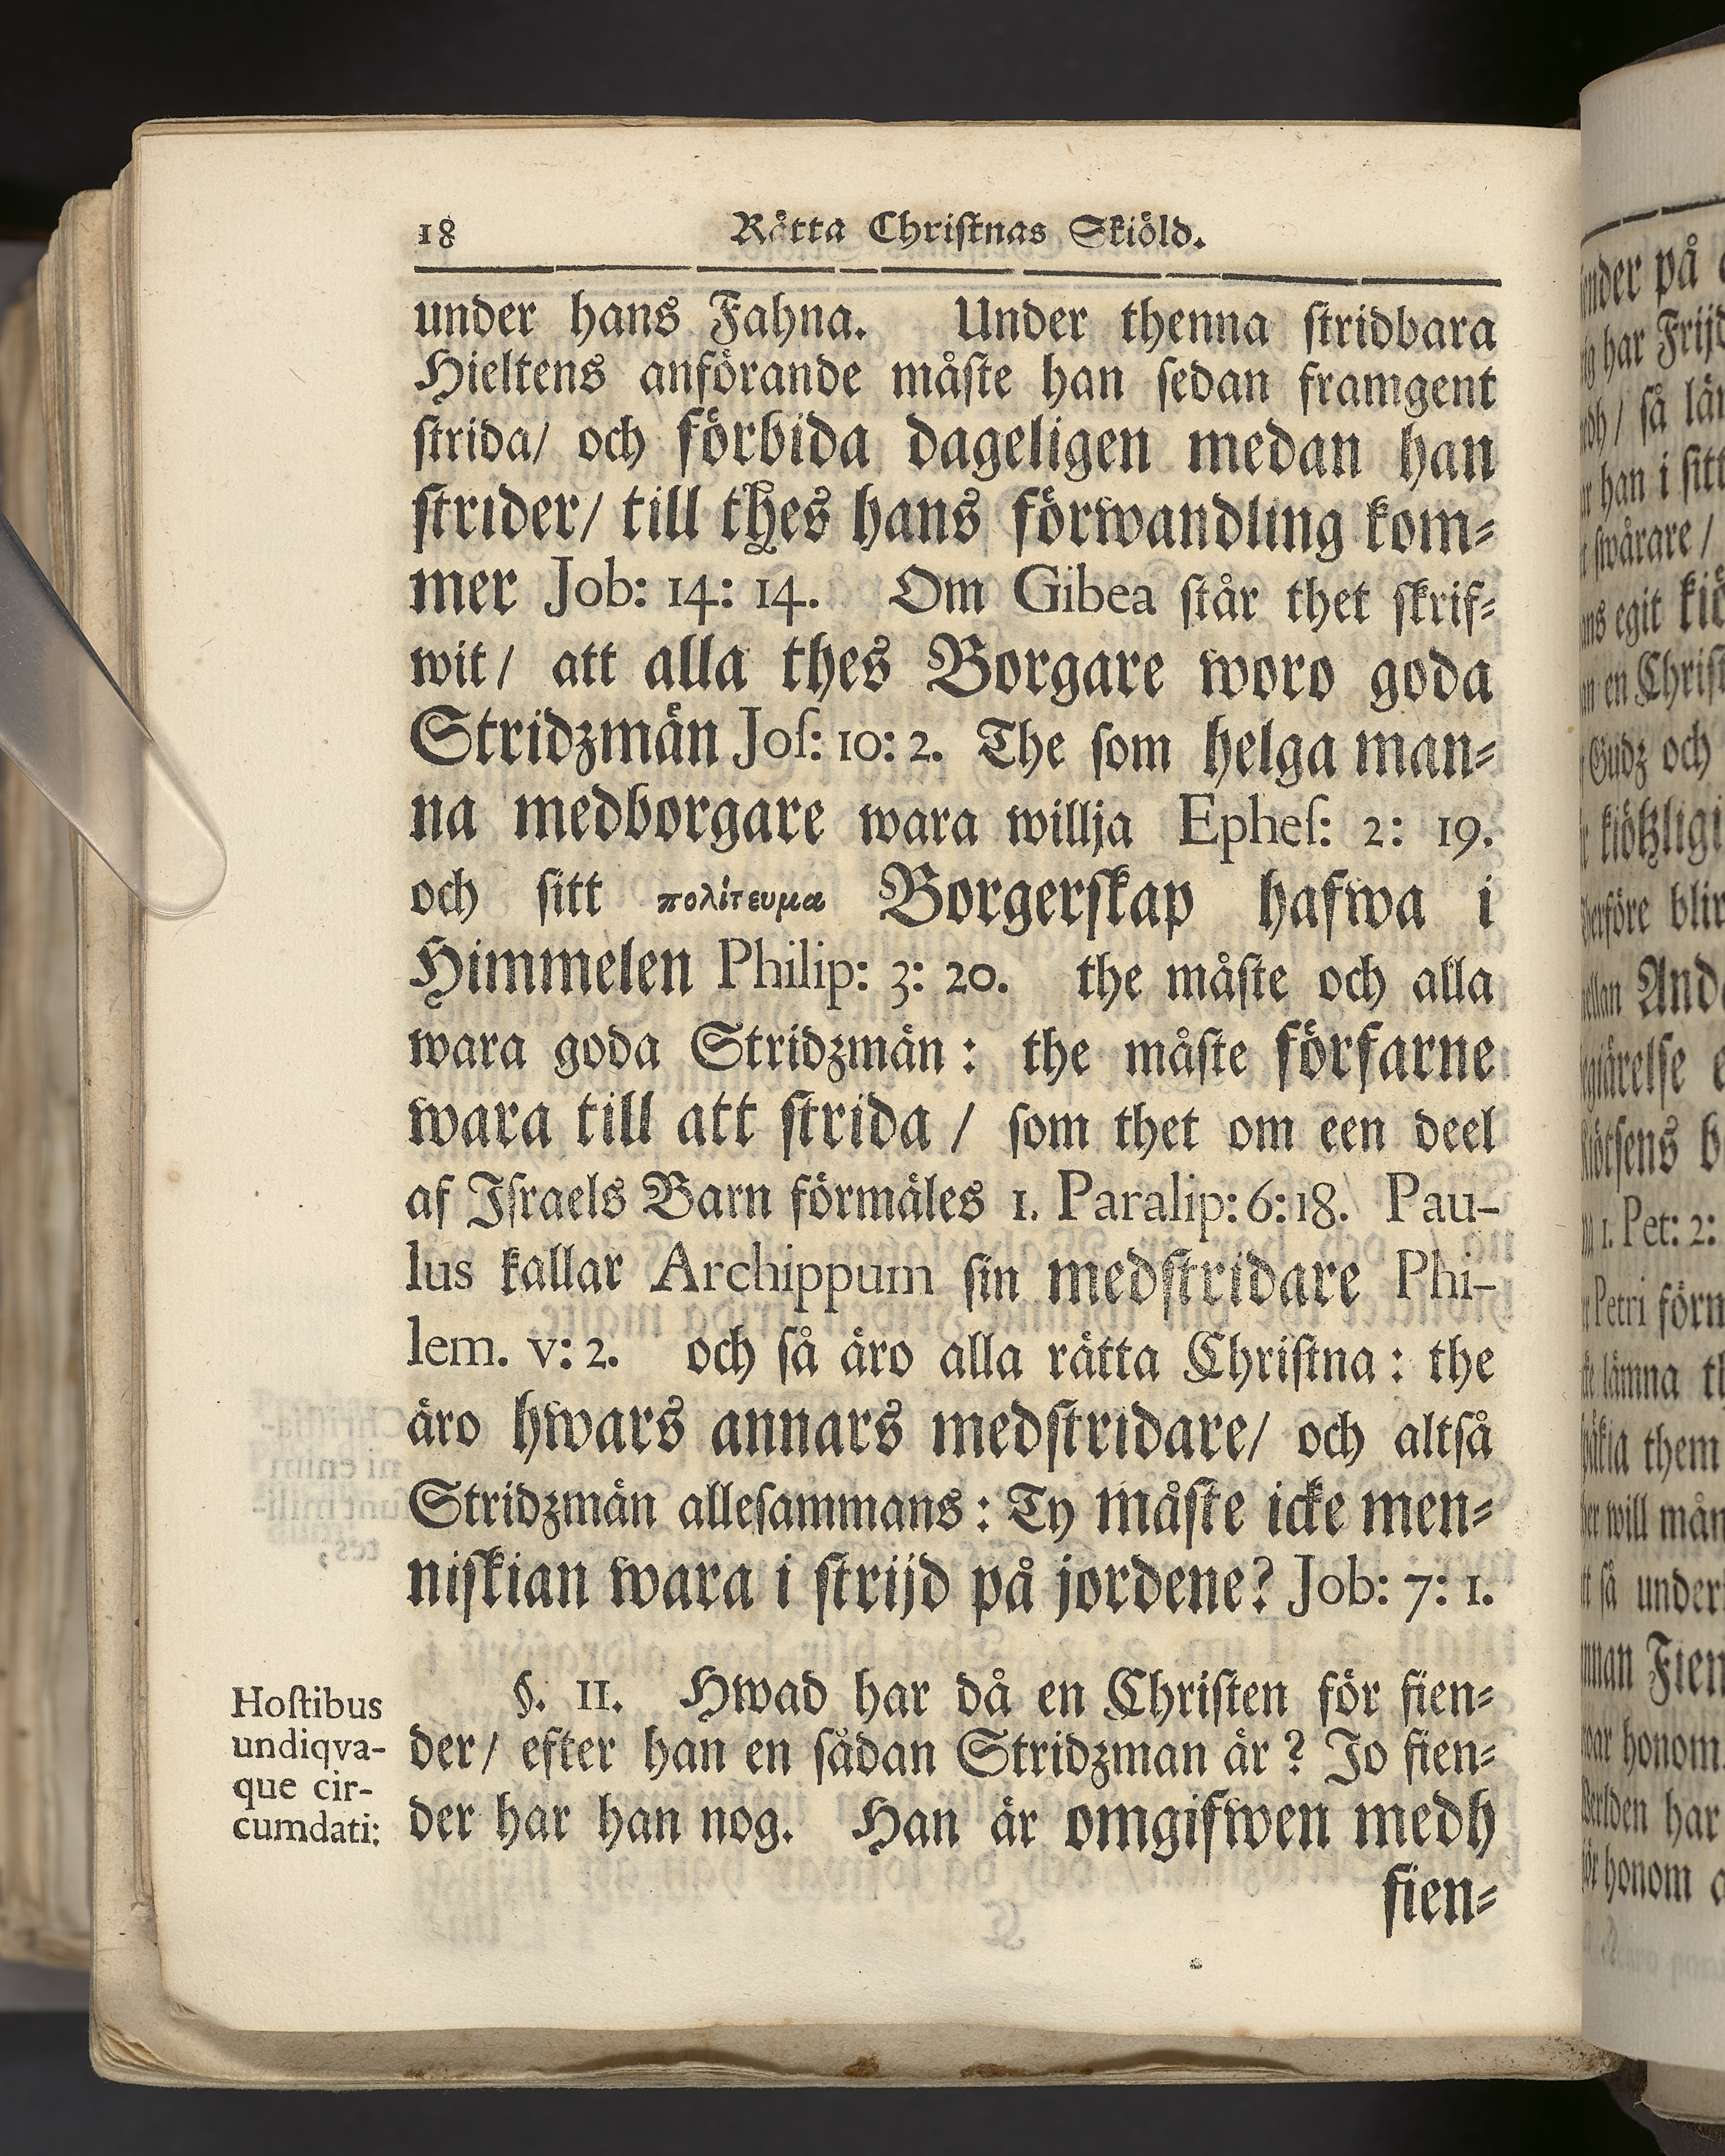 18 Rätta Chriſtnas Skiöld.
under hans Fahna. Under thenna ſtridbara
Hieltens anförande måſte han ſedan framgent
ſtrida/ och förbida dageligen medan han
ſtrider/ till thes hans förwandling kom⸗
mer Job: 14: 14. Om Gibea ſtår thet ſkrif⸗
wit/ att alla thes Borgare woro goda
Stridzmän Joſ: 10: 2. The ſom helga man⸗
na medborgare wara willja Epheſ: 2: 19.
och ſitt πολίτευμα Borgerſkap hafwa i
Himmelen Philip: 3: 20. the måſte och alla
wara goda Stridzmän: the måſte förfarne
wara till att ſtrida/ ſom thet om een deel
af Iſraels Barn förmäles 1. Paralip: 6: 18. Pau-
lus kallar Archippum ſin medſtridare Phi-
lem. v: 2. och ſå äro alla rätta Chriſtna: the
äro hwars annars medſtridare/ och altſå
Stridzmän alleſammans: Ty måſte icke men⸗
niſkian wara i ſtrijd på jordene? Job: 7: 1.
§. II. Hwad har då en Chriſten för fien⸗
der/ efter han en ſådan Stridzman är? Jo fien⸗
der har han nog. Han är omgifwen medh
fien⸗
Hoſtibus
undiqva-
que cir-
cumdati:
under på
har Frijd
ſå
han i ſitt
ſwårare/
egit
en
Gudz och
blir
förn
lämna
them
will
ſå under
honom
har
honom